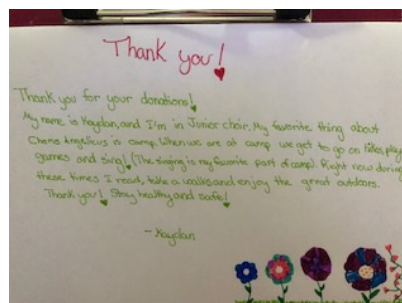 Thank you!
Thank you for your donations!
My name is Kaydan, and I'm in Junior choir. My favorite thing about
Chorus Angelicus is camp. When we are at camp we get to go on hikes, play
games and sing! (The singing is my favorite part of camp). Right now during
these times I read, take a walks and enjoy the great outdoors.
Thank you! Stay healthy and safe!
- Kaydan